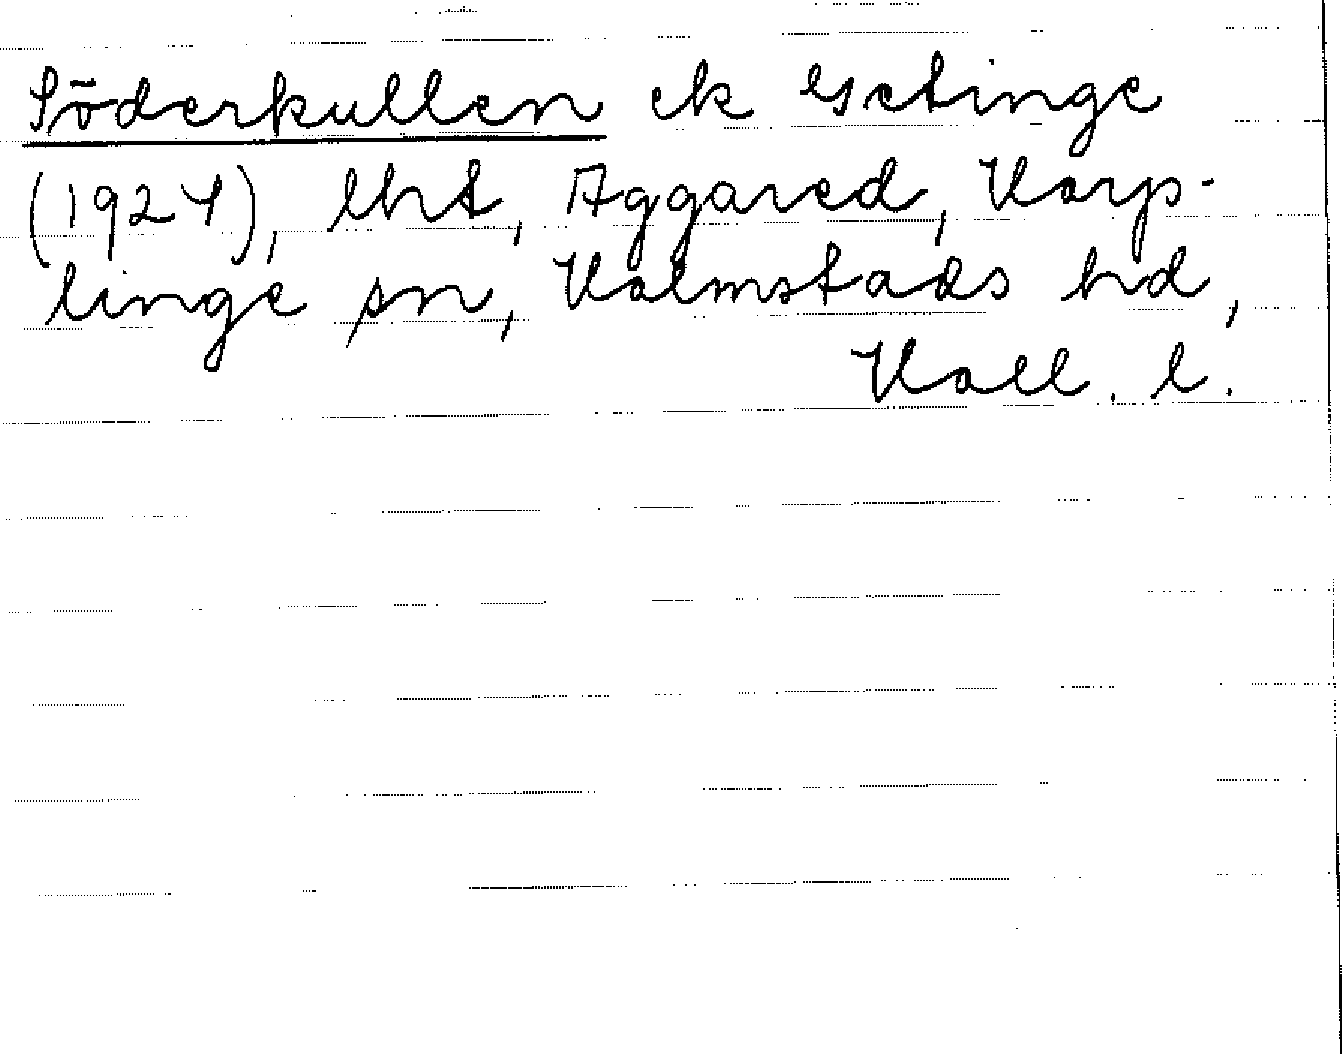 Söderkullen ek Getinge
(1924), lht, Aggared, Harp-
linge sn, Halmstads hd,
Hall. l.